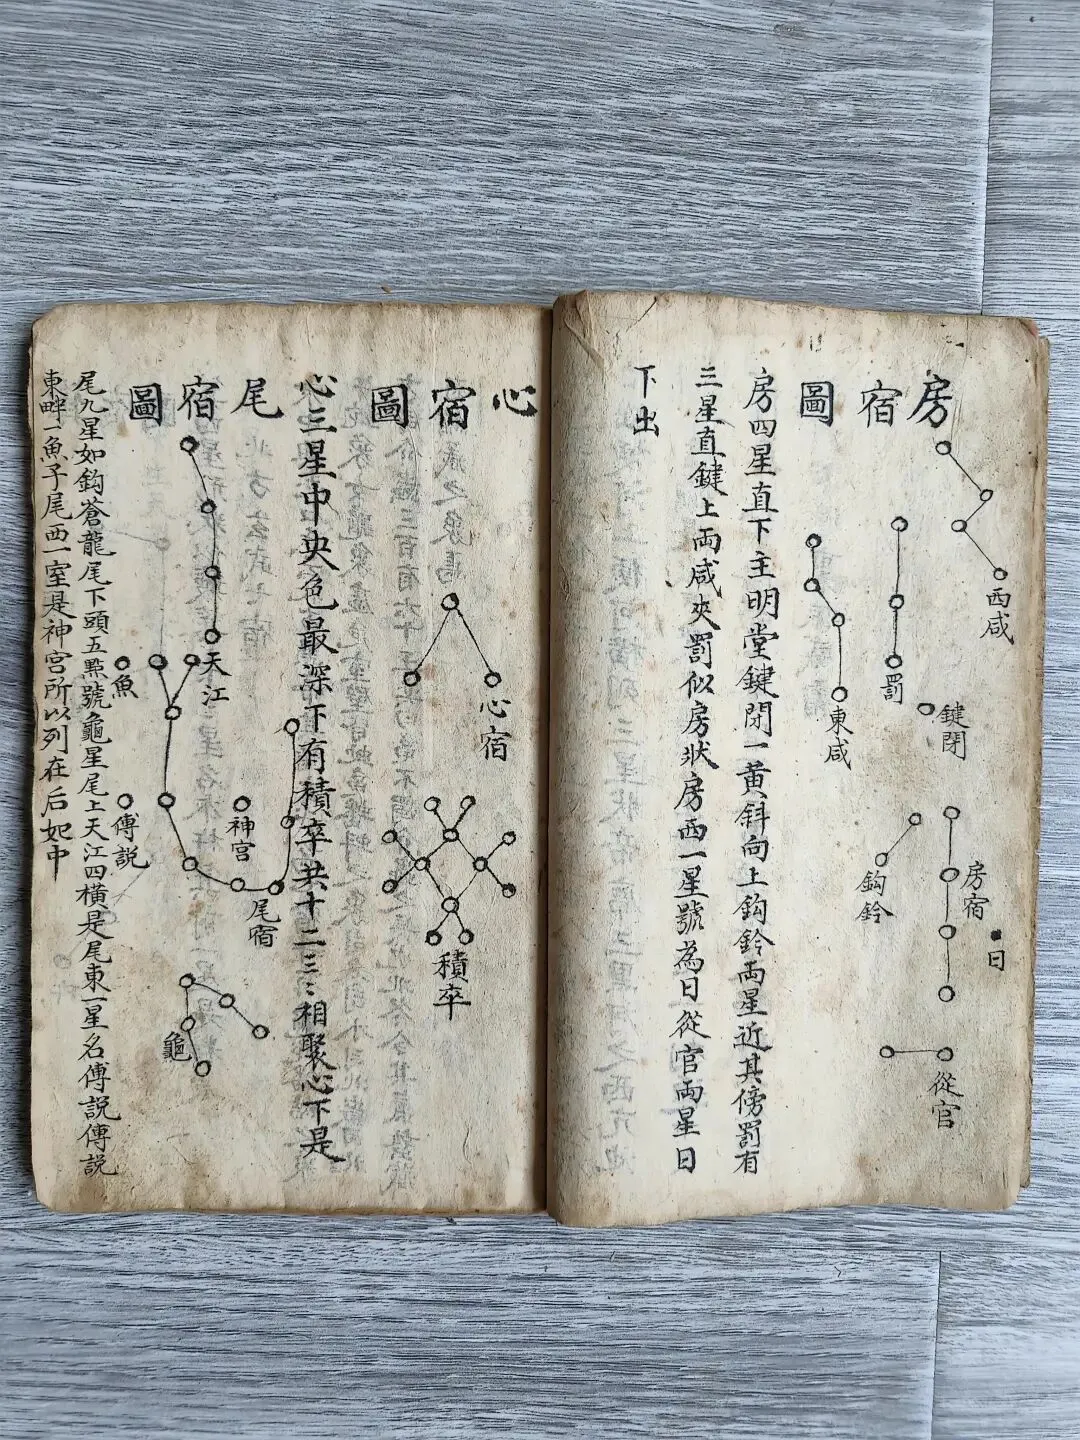 房宿圖
西咸
罰
東咸
鍵閉
鈎鈴
房宿
日
從官
房四星直下主明堂鍵閉一黃斜向上鈎鈴両星近其傍罰有
三星直鍵上両咸夾罰似房狀房西一星號為日從官両星日
下出
心宿圖
心宿
積卒
心三星中央色最深下有積卒共十二三：相聚心下是
尾宿圖
天江
魚
傅説
神宮
尾宿
龜
尾九星如鈎蒼龍尾下頭五㸃號龜星尾上天江四横是尾東一星名傅説傅説
東畔一魚子尾西一室是神宮所以列在后妃中